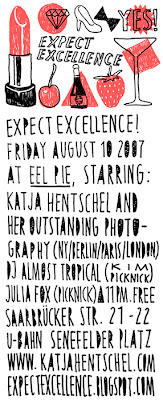 YES!
EXPECT
EXCELLENCE
EXPECT EXCELLENCE!
FRIDAY AUGUST 10 2007
AT EEL PIE, STARRING:
KATJA HENTSCHEL AND
HER OUTSTANDING PHOTO-
GRAPHY (NY/BERLIN/PARIS/LONDON)
DJ ALMOST TROPICAL (KIM PICKNICK)
JULIA FOX (PICKNICK) 11PM. FREE
SAARBRÜCKER STR. 21-22
U-BAHN SENEFELDER PLATZ
WWW.KATJAHENTSCHEL.COM
EXPECTEXCELLENCE.BLOGSPOT.COM